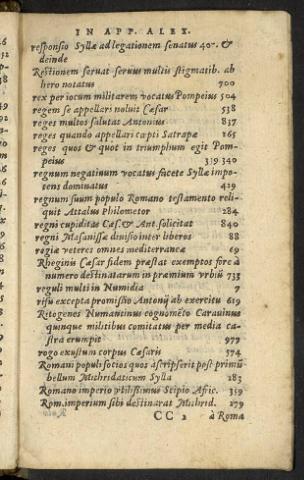 IN APP. ALEX.
responsio Syllæ ad legationem senatus 407. &
deinde
Restionem seruat seruus multis stigmatib. ab
hero notatus 700
rex per iocum militarem vocatus Pompeius 504
regem se appellari noluit Cæsar 538
reges multos salutat Antonius 837
reges quando appellari cœpti Satrapæ 165
reges quos & quot in triumphum egit Pom-
peius 339 340
regnum negatinum vocatus facete Syllæ impo-
tens dominatus 429
regnum suum populo Romano testamento reli-
quit Attalus Philometor 284
regni cupiditas Cæs. & Ant. solicitat 840
regni Masanissæ diuisio inter liberos 88
regia veteres omnes mediterraneæ 69
Rheginis Cæsar fidem præstat exemptos fore à
numero destinatarum in præmium vrbiū 733
reguli multi in Numidia 7
risu excepta promissio Antonij ab exercitu 619
Ritogenes Numantinus cognomēto Carauinus
quinque militibus comitatus per media ca-
stra erumpit 977
rogo exustum corpus Cæsaris 574
Romani populi socios quos adscripserit post primū
bellum Mithridaticum Sylla 183
Romano imperio vtilissimus Scipio Afric. 359
Rom. imperium sibi destinarat Mithrid. 279
CC 2 à Roma